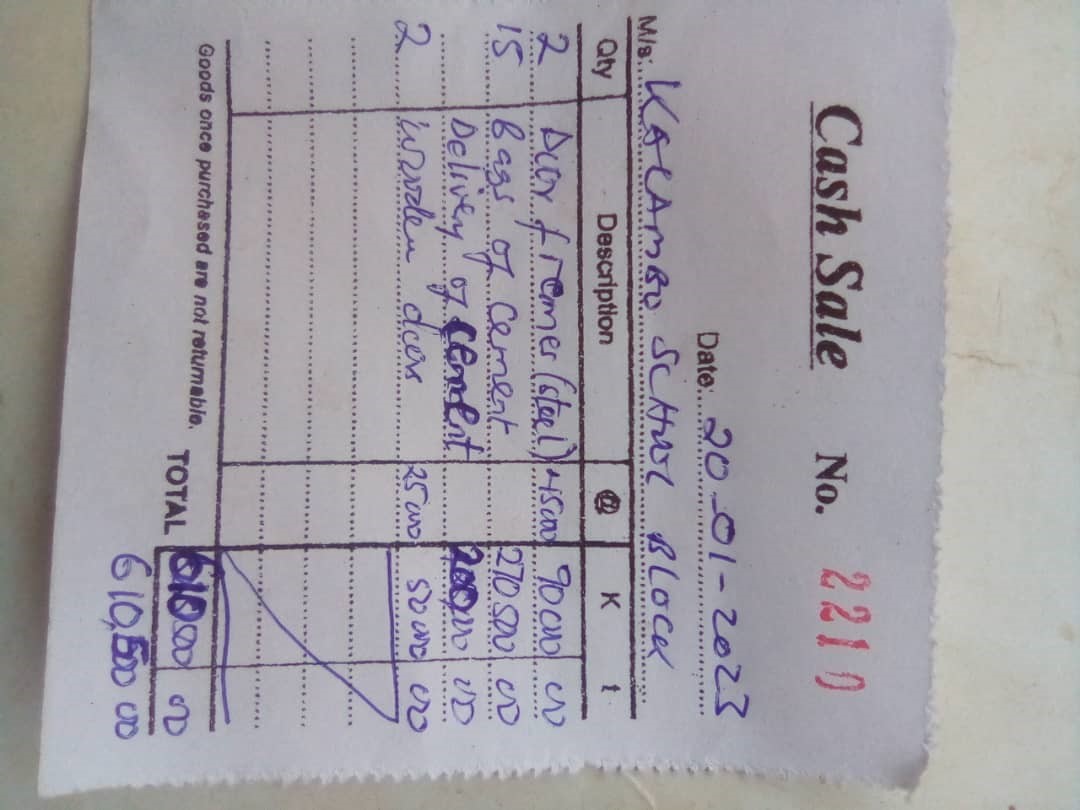 Cash Sale No. 2210
Date: 20-01-2023
M/s: KACAMBO SCHOOL BLOCK
Qty Description @ K t
2 Door frames (steel) 45000 90000 00
15 Bags of cement 270500 00
Delivery of cement 200000 00
2 Wooden doors 25000 50000 00
Goods once purchased are not returnable. TOTAL 610000 00
610,500 00